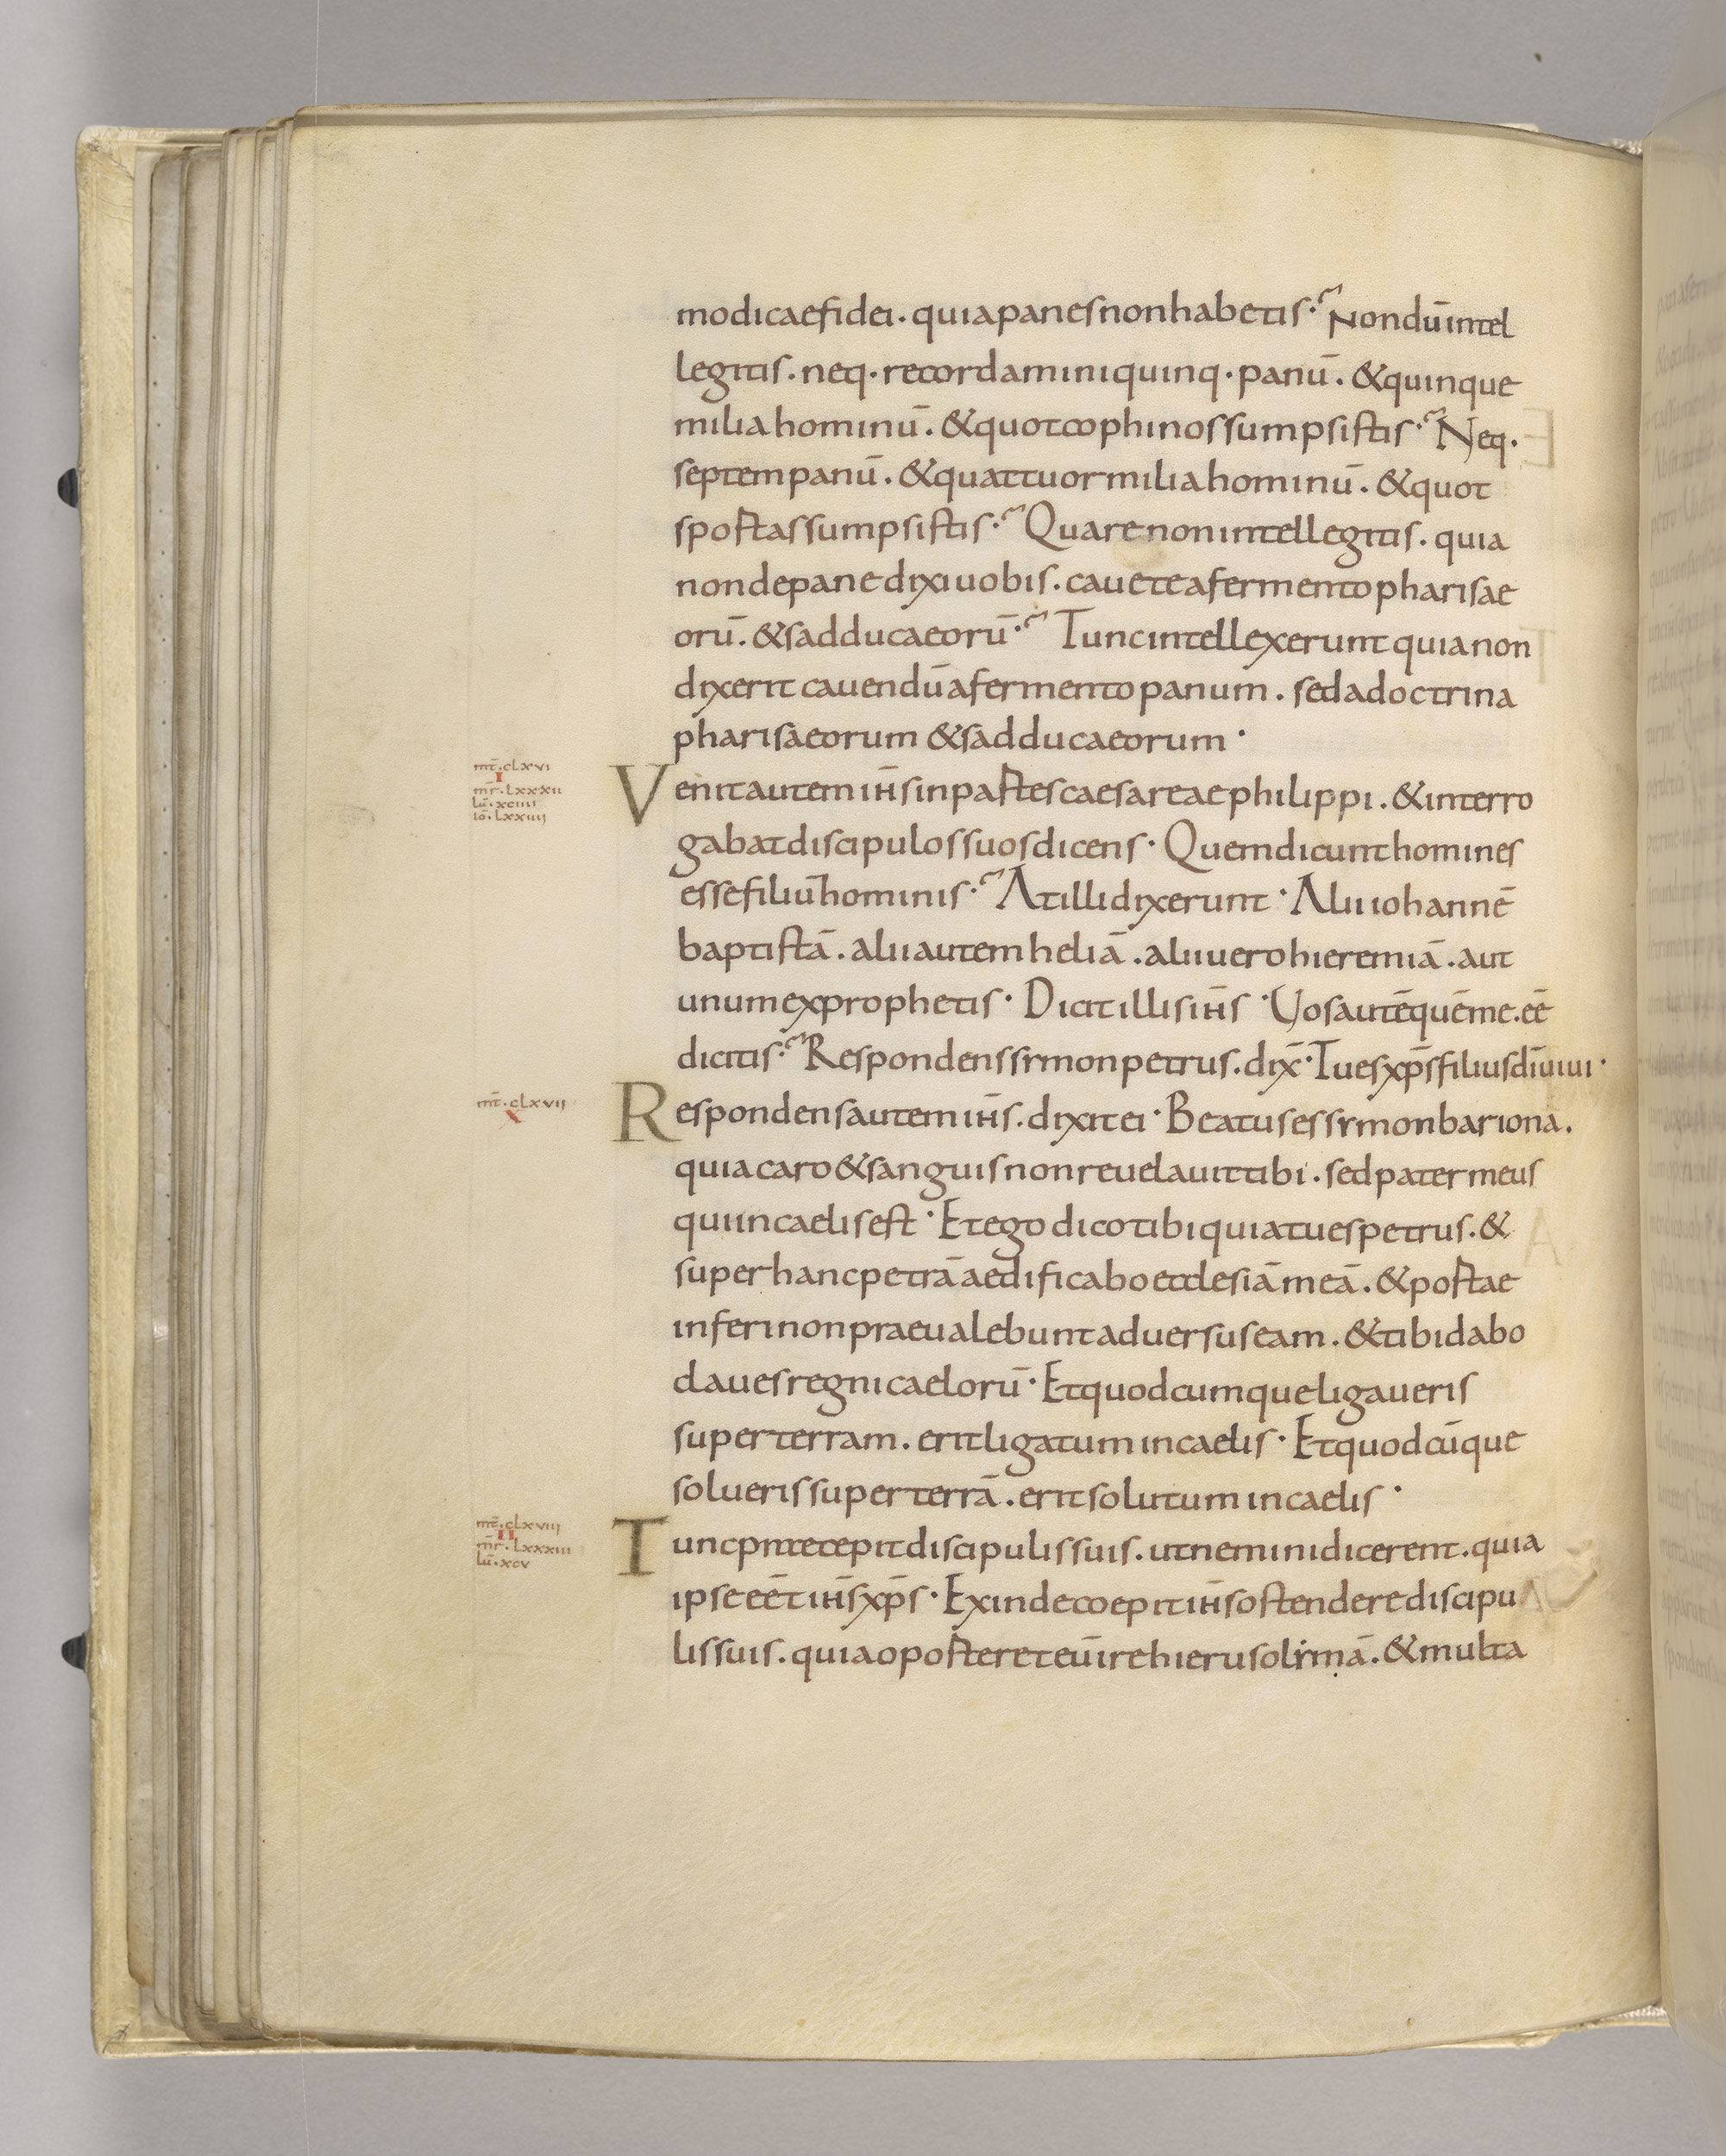 modicae fidei · quia panes non habetis ·̃ Nondū intel
legitis · neq· recordamini quinq· panū · & quinque
milia hominū · & quot cophinos sumpsistis ·̃ Neq·
septem panū · & quattuor milia hominū · & quot
sportas sumpsistis ·̃ Quare non intellegitis · quia
non de pane dixi uobis · cauete a fermento pharisae
orū · & sadducaeorū ·̃ Tunc intellexerunt quia non
dixerit cauendū a fermento panum · sed a doctrina
pharisaeorum & sadducaeorum ·
mt̄ · clxvi
I
mr̄ · lxxxii
lū · xciiii
io̅ · lxxiiii
Venit autem ih̄s in partes caesareae philippi · & interro
gabat discipulos suos dicens · Quem dicunt homines
esse filiū hominis ·̃ At illi dixerunt · Alii iohannē
baptistā · alii autem heliā · alii uero hieremiā · aut
unum ex prophetis · Dicit illis ih̄s · Uos autē quē me · eē
dicitis ·̃ Respondens symon petrus · dix̄ · Tu es xp̄s filius dī uiui ·
mt̄ · clxvii
x
Respondens autem ih̄s · dixit ei · Beatus es symon bariona ·
quia caro & sanguis non reuelauit tibi · sed pater meus
qui in caelis est · Et ego dico tibi quia tu es petrus · &
super hanc petrā aedificabo ecclesiā meā · & portae
inferi non praeualebunt aduersus eam · & tibi dabo
claues regni caelorū · Et quodcumque ligaueris
super terram · erit ligatum in caelis · Et quodcūque
solueris super terrā · erit solutum in caelis ·
mt̄ · clxviii
II
mr̄ · lxxxiii
lū · xcv
Tunc praecepit discipulis suis · ut nemini dicerent · quia
ipse eēt ih̄s xp̄s · Exinde coepit ih̄s ostendere discipu
lis suis · quia oporteret eū ire hierusolimā · & multa